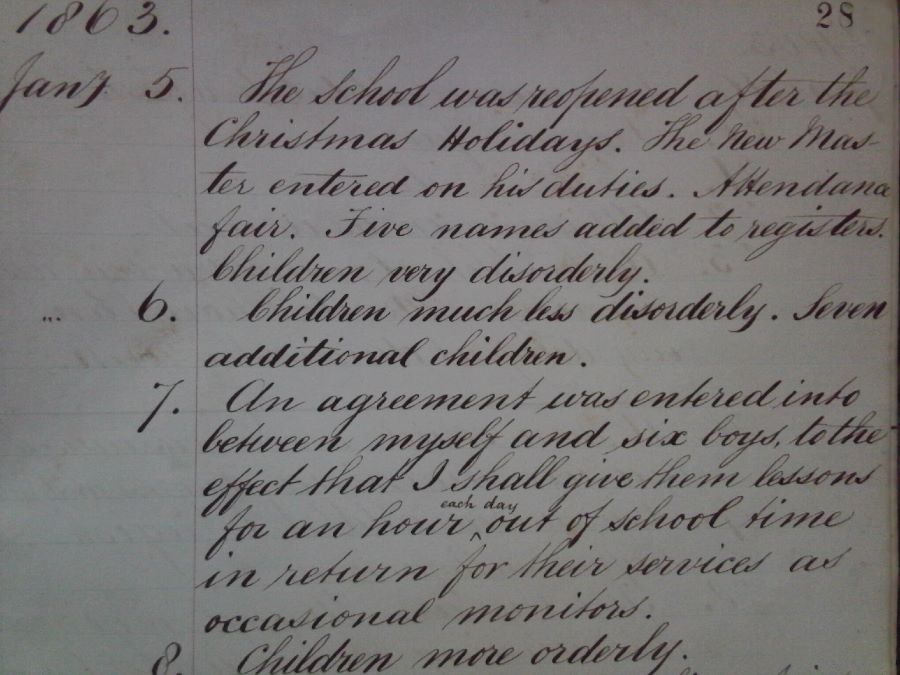 1863. 28
Jany 5. The School was reopened after the
Christmas Holidays. The New Mas-
ter entered on his duties. Attendance
fair. Five names added to registers.
Children very disorderly.
... 6. Children much less disorderly. Seven
additional children.
7. An agreement was entered into
between myself and six boys, to the
effect that I shall give them lessons
each day
for an hour ^ out of school time
in return for their services as
occasional monitors.
8. Children more orderly.